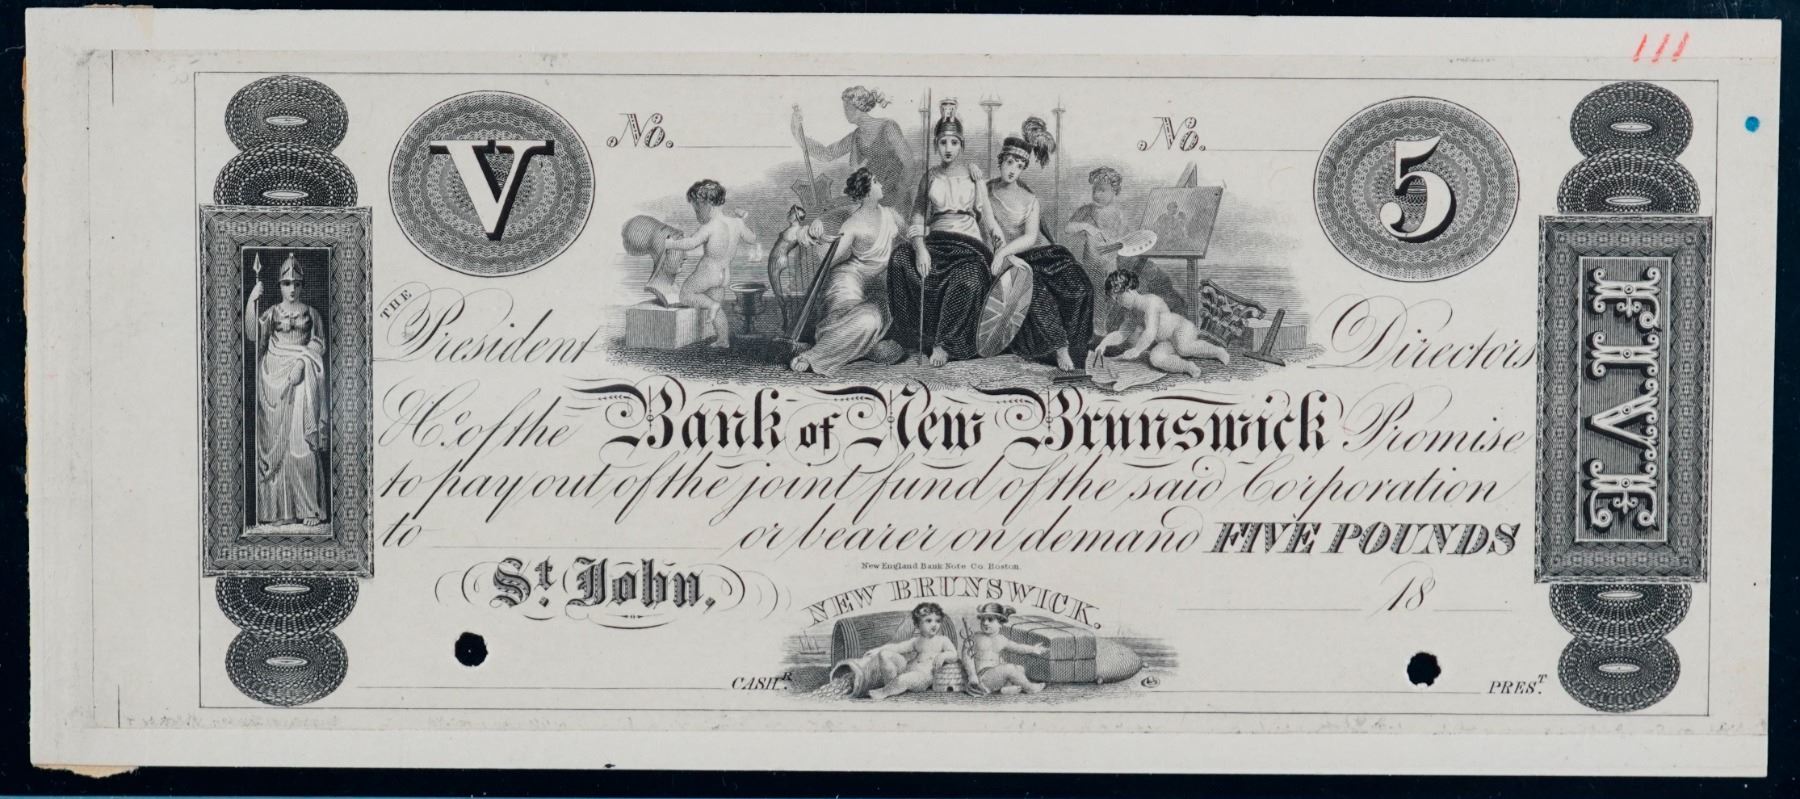 111
V
No.
No.
5
THE
President
Directors
& Co. of the Bank of New Brunswick Promise
to pay out of the joint fund of the said Corporation
to or bearer on demand FIVE POUNDS
FIVE
New England Bank Note Co. Boston.
St. John,
NEW BRUNSWICK.
18
CASHR.
PREST.